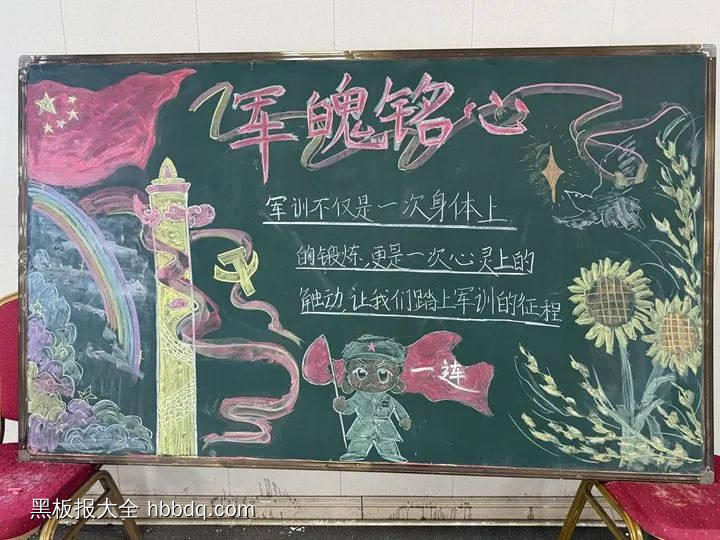 军魂铭心
军训不仅是一次身体上
的锻炼,更是一次心灵上的
触动,让我们踏上军训的征程
一连
黑板报大全 hbbdq.com